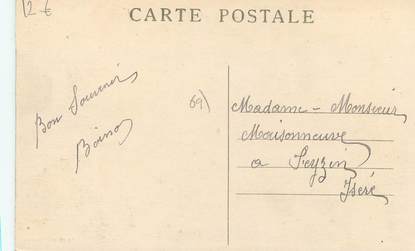 12 €
CARTE POSTALE
Bon Souvenir
69)
Madame - Monsieur
Maisonneuve
a Feyzin
Isère